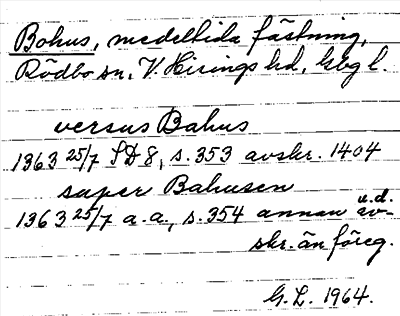 Bohus, medeltida fästning,
Rödbo sn, V. Hisings hd, Gbg l.
versus Bahus
1363 25/7 SD 8, s. 353 avskr. 1404
super Bahusen
1363 25/7 a.a., s. 354 annan u.d. av-
skr. än föreg.
G.L. 1964.